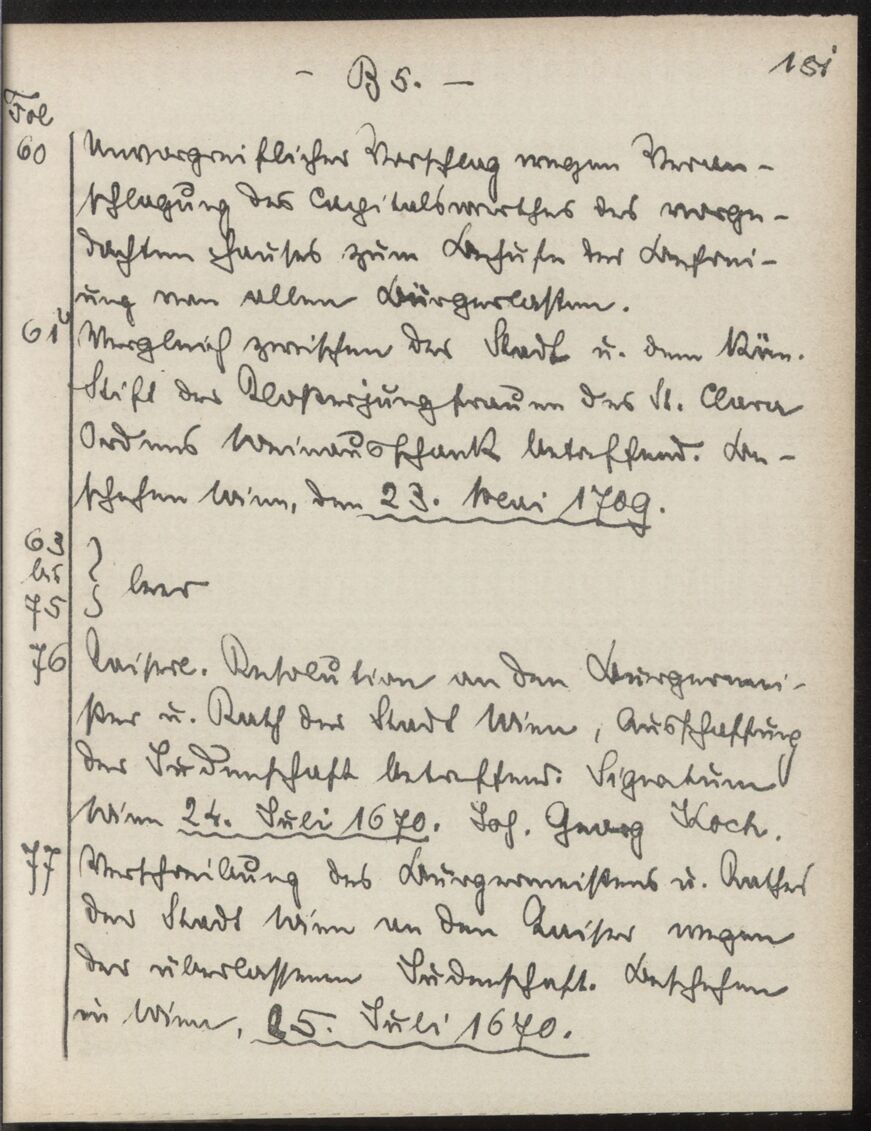 - B 5. -
151
Fol
60 Unvorgreiflicher Vorschlag wegen Veran-
schlagung des Capitalswerthes des vorge-
dachten Hauses zum Behufe der Befrei-
ung von allen Bürgerlasten.
61v Vergleich zwischen der Stadt u. dem Kön.
Stift der Klosterjungfrauen des St. Clara
Ordens Weinausschank betreffend. Be-
schehen Wien, den 23. Mai 1709.
63
bis } leer
75
76 Kaiserl. Resolution an den Burgermei-
ster u. Rath der Stadt Wien, Ausschaffung
der Judenschaft betreffend. Signatum
Wien 24. Juli 1670. Joh. Georg Koch.
77 Verschreibung des Burgermeisters u. Rathes
der Stadt Wien an den Kaiser wegen
der überlassenen Judenschaft. Beschehen
in Wien, 25. Juli 1670.